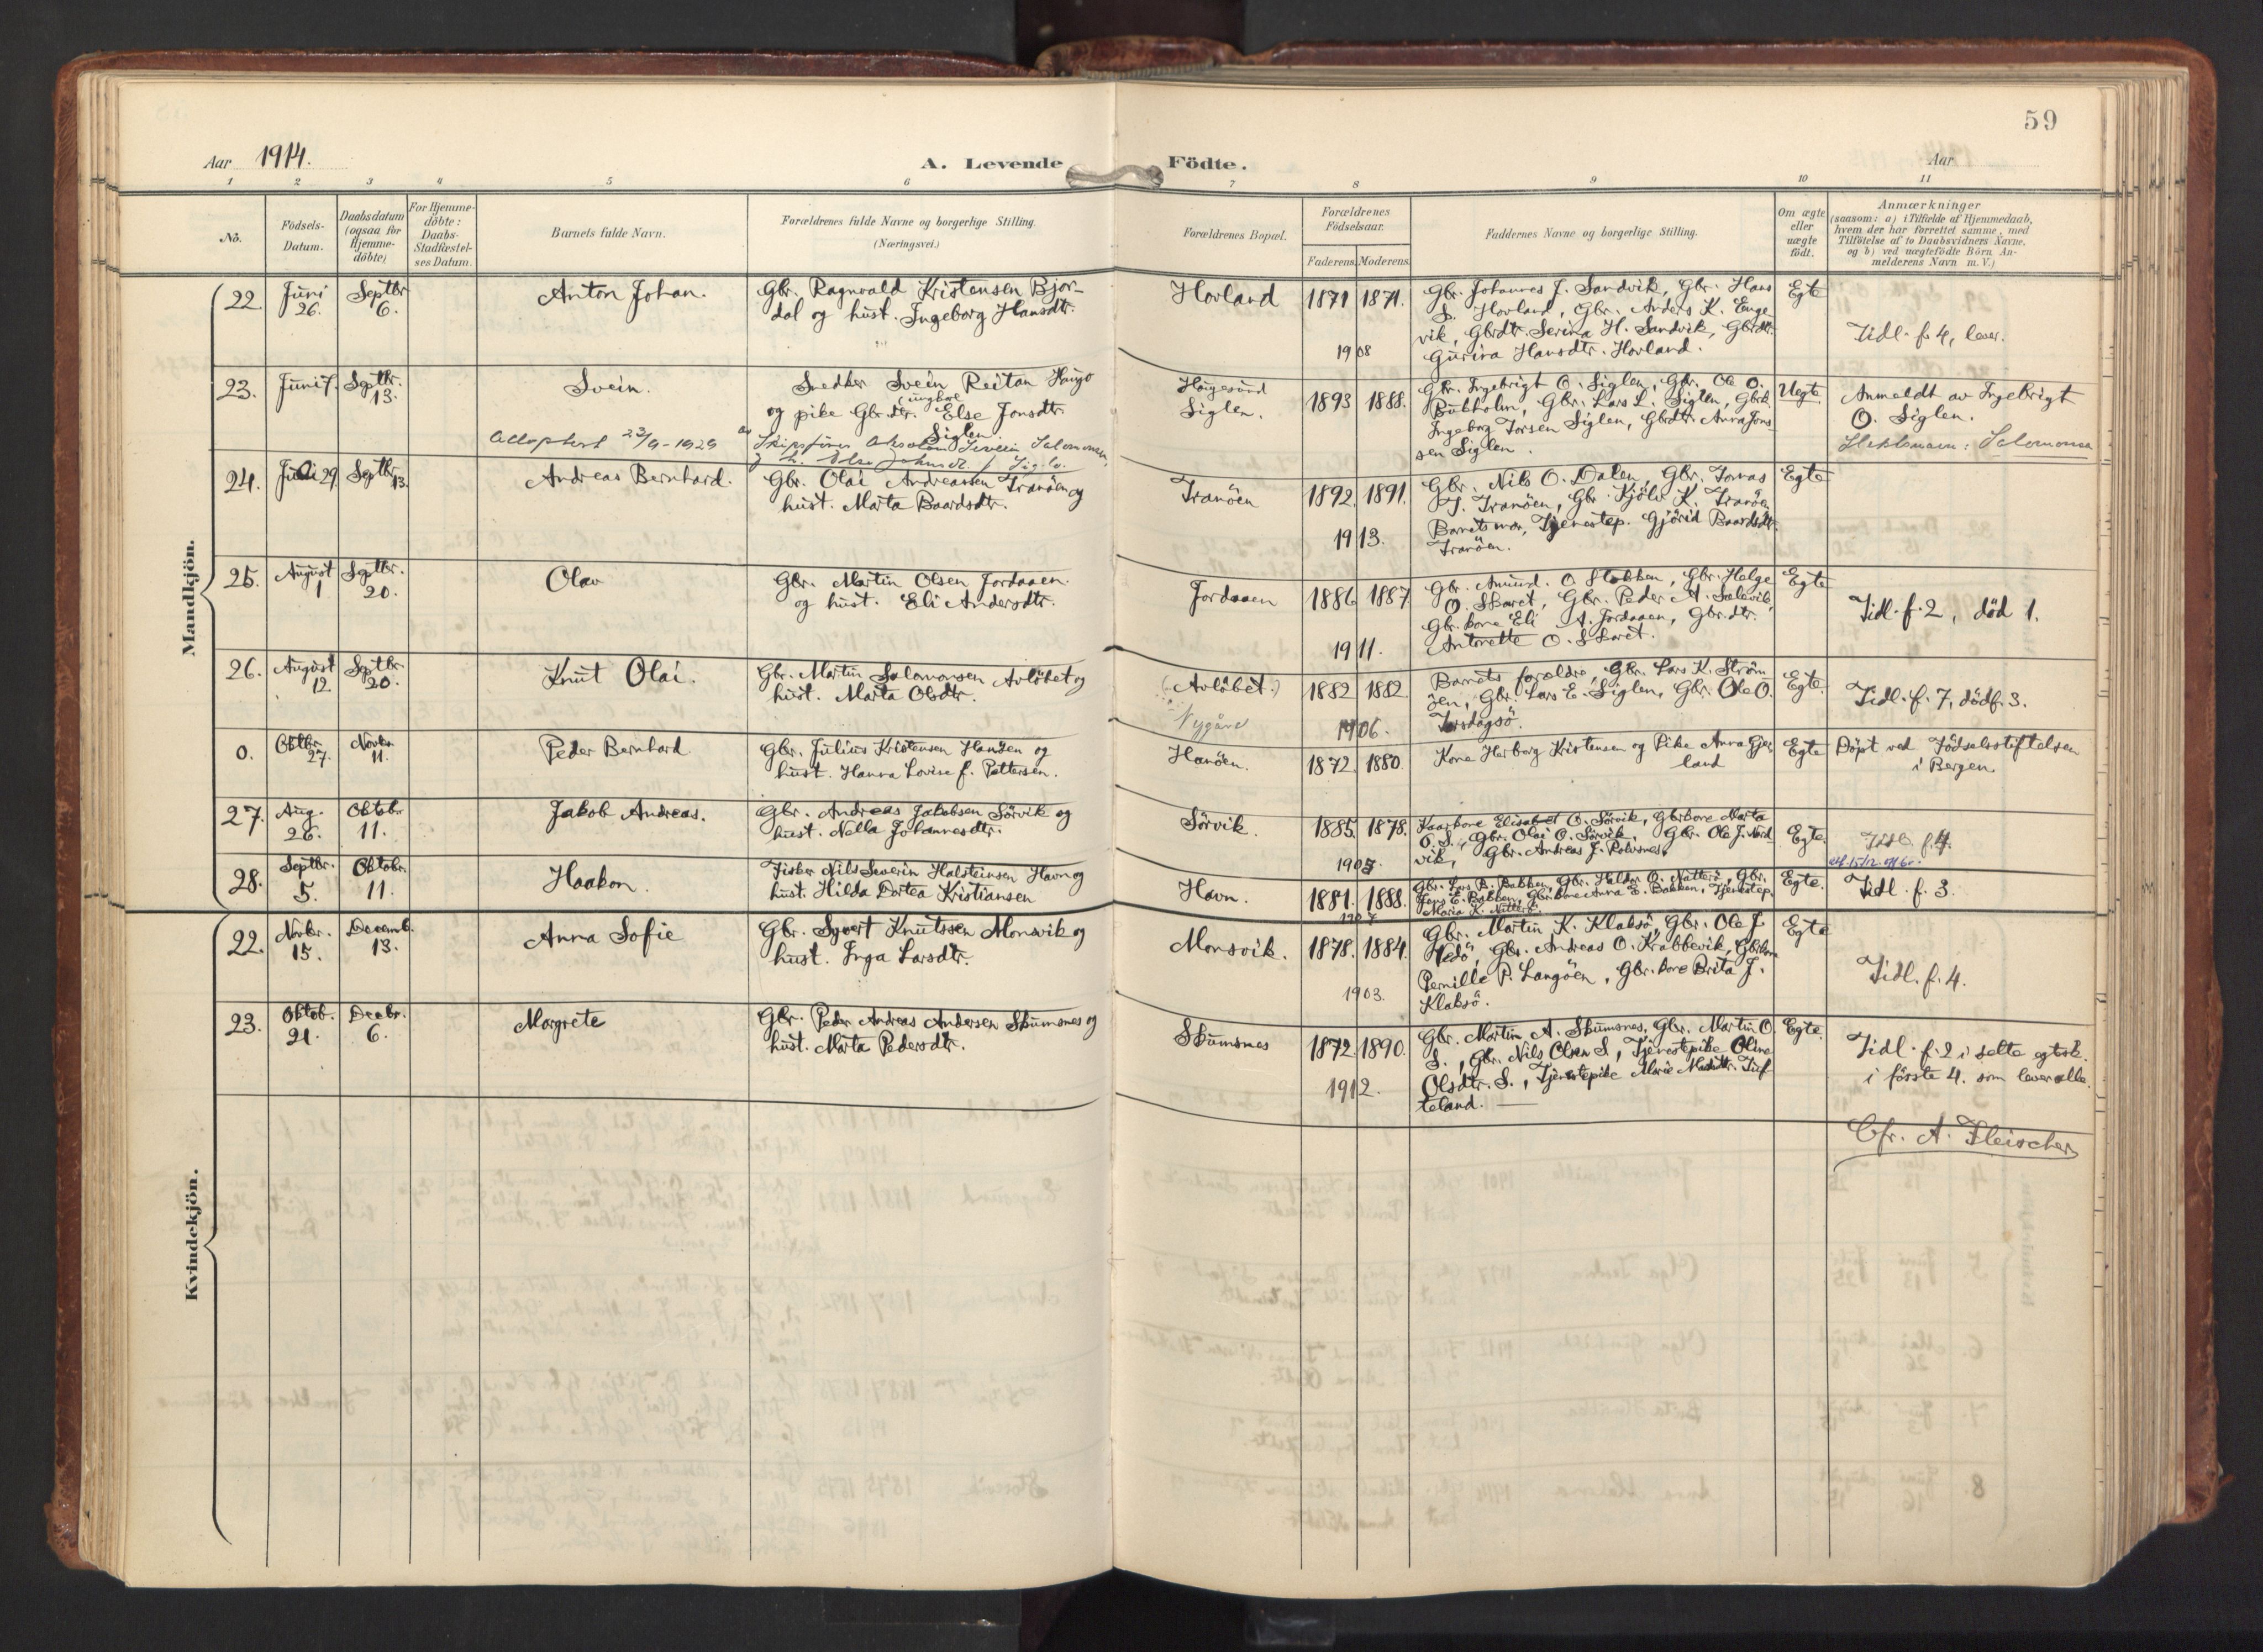 59
Aar 1914.
A. Levende Fødte.
Aar
1 2 3 4 5 6 7 8 9 10 11
No.
Födsels-
Datum.
Daabsdatum
(ogsaa for
Hjemme-
döbte)
For Hjemme-
döbte:
Daabs-
Stadfæstel-
ses Datum.
Barnets fulde Navn.
Forældrenes fulde Navne og borgerlige Stilling.
(Næringsvei.)
Forældrenes Bopæl.
Forældrenes
Födselsaar.
Faderens. Moderens.
Faddernes Navne og borgerlige Stilling.
Om ægte
eller
uægte
födt.
Anmærkninger
(saasom: a) i Tilfælde af Hjemmedaab,
hvem der har forrettet samme, med
Tilföielse af to Daabsvidners Navne,
og b) ved uægtefödte Börn An-
melderens Navn m. V.)
Mandkjön.
22. Juni 26. Septbr 6.
Anton Johan.
Gbr. Ragnvald Kristensen Bjor-
dal og hust. Ingeborg Hansdtr.
Hovland
1871 1871.
1908
Gbr. Johannes J. Sandvik, Gbr. Hans
S. Hovland, Gbr. Anders K. Enge-
vik, Gbrdtr. Serina H. Sandvik, Gbrdtr.
Gurina Hansdtr. Hovland.
Egte
Tidl. f. 4, lever.
23. Juni 7. Septbr. 13.
Svein.
Snedker Svein Reitan Hauge
og pike Gbr.dtr. Else Jonsdtr.
Siglen.
Adoptert 23/9-1929
Haugesund
Siglen.
1893 1888.
Gbr. Ingebrigt O. Siglen, Gbr. Ole O.
Bukholm, Gbr. Lars L. Siglen,
Ingeborg Torsen Siglen, Gbrdtr. Anna Jons-
sen Siglen.
Uegte.
Anmeldt av Ingebrigt
O. Siglen.
Slektsnavn: Salomonsen
24. Juli 29 Septbr 13.
Andreas Bernhard.
Gbr. Olai Andreassen Tranöen og
hust. Marta Baardsdtr.
Tranöen
1892. 1891.
1913.
Gbr. Nils O. Dalen, Gbr. Tomas
J. Tranöen, Gbr. Kjöln K. Tranöen
Barnets mor, Tjenestep. Gjörid Baardsdtr.
Tranöen.
Egte
25. August 1 Septbr. 20.
Olav
Gbr. Martin Olsen Jordaaen.
og hust. Eli Andersdtr.
Jordaaen
1886 1887.
1911.
Gbr. Amund. O Stokken, Gbr. Helge
O. Skaret, Gbr. Peder A. Salevik,
Gbr. kone Eli A. Jordaaen, Gbr.dtr.
Antonette O. Skaret.
Egte
Tidl. f. 2, död 1.
26. August 12 Septbr. 20.
Knut Olai.
Gbr. Martin Salomonsen Avlöbet og
hust. Marta Olsdtr.
(Avlöbet.)
Nygård
1882 1882
1906.
Barnets forældre, Gbr. Lars K. Ström-
öen, Gbr. Lars E. Siglen, Gbr. Ole O.
Torsdagsö.
Egte.
Tidl. f. 7, dödf. 3.
0. Oktbr. 27. Novbr. 11.
Peder Bernhard
Gbr. Julius Kristensen Hanöen og
hust. Hanna Lovise f. Pettersen.
Hanöen.
1872. 1880.
Kone Herborg Kristensen og Pike Anna Gjer-
land
Egte
Döpt ved Födselsstiftelsen
i Bergen.
27. Aug. 26. Oktobr. 11.
Jakob Andreas.
Gbr. Andreas Jakobsen Sörvik og
hust. Nella Johannesdtr.
Sörvik.
1885. 1878.
1907.
Kaarkone Elisabet O. Sörvik, Gbrkone Marta
O. S., Gbr. Olai O. Sörvik, Gbr. Ole J. Nord-
vik, Gbr. Andreas J. Rolvsnes.
Egte.
Tidl. f. 4.
28. Septbr. 5. Oktobr. 11.
Haakon.
Fisker Nils Severin Halsteinsen Havn og
hust. Hilda Dortea Kristiansen
Havn.
1881. 1888.
1907
Gbr. Lars B. Bakken, Gbr. Haldor O. Natterö, Gbr.
Jens E. Bakken, Gbr. kone Anna E. Bakken, Tjenestep.
Maria K. Natterö.
Egte.
Tidl. f. 3.
Kvindekjön.
22. Novbr. 15. Decemb. 13.
Anna Sofie
Gbr. Syvert Knutssen Monsvik og
hust. Inga Larsdtr.
Monsvik.
1878. 1884.
1903.
Gbr. Martin K. Klaksö, Gbr. Ole J.
Vedö, Gbr. Andreas O. Krabbevik, Gbrkone
Pernille P. Langöen, Gbr. kone Brita J.
Klaksö.
Egte
Tidl. f. 4.
23. Oktob. 21. Decbr. 6.
Margrete
Gbr. Peder Andreas Andersen Skumsnes og
hust. Marta Pedersdtr.
Skumsnes
1872. 1890.
1912.
Gbr. Martin A. Skumsnes, Gbr. Martin O.
S., Gbr. Nils Olsen S., Tjenestepike Oline
Olsdtr. S., Tjenestepike Marie
teland.
Egte.
Tidl. f. 2 i dette egtesk.
i förste 4. som lever alle.
Cfr. A. Fleischer